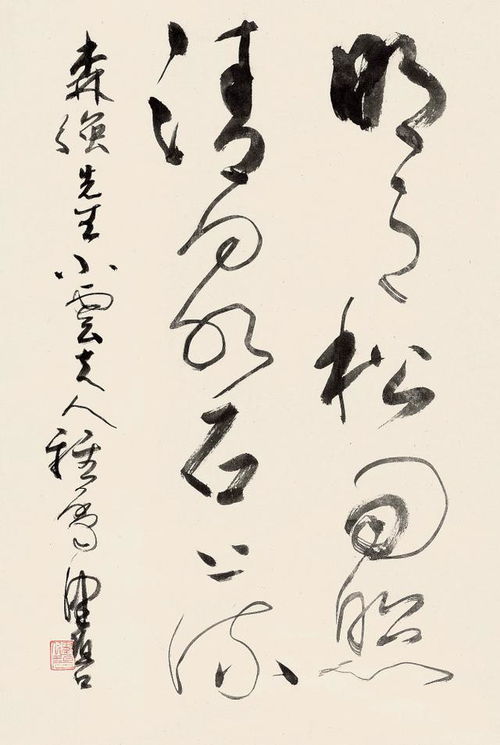 明月松間照
清泉石上流
森強先生小雲夫人雅屬